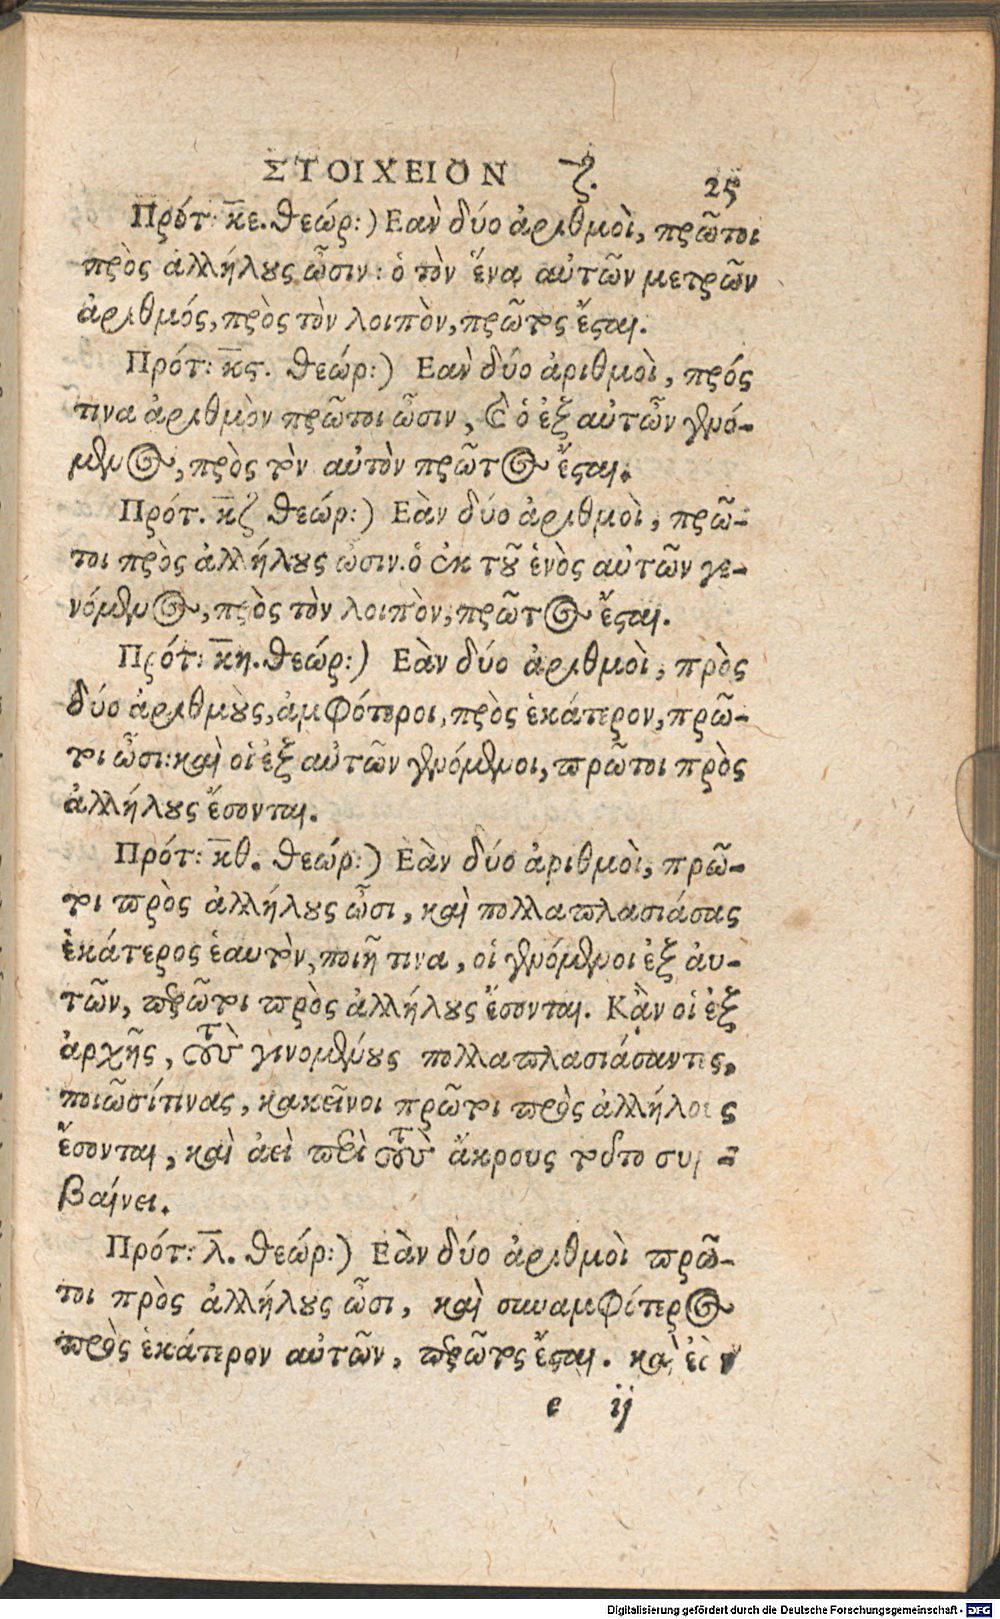 ΣΤΟΙΧΕΙΟΝ ζ. 25
Πρότ: κ̅ε. θεώρ:) Εαὰν δύο ἀριθμοὶ, πρῶτοι
πρὸς ἀλλήλους ὦσιν: ὁ τὸν ἕνα αὐτῶν μετρῶν
ἀριθμός, πρὸς τὸν λοιπὸν, πρῶτος ἔσται.
Πρότ: κ̅ϛ. θεώρ:) Εαὰν δύο ἀριθμοὶ, πρός
τινα ἀριθμὸν πρῶτοι ὦσιν, καὶ ὁ ἐξ αὐτῶν γενό-
μενος, πρὸς τὸν αὐτὸν πρῶτος ἔσται.
Πρότ. κ̅ζ θεώρ:) Εὰν δύο ἀριθμοὶ, πρῶ-
τοι πρὸς ἀλλήλους ὦσιν. ὁ ἐκ τοῦ ἑνὸς αὐτῶν γε-
νόμενος, πρὸς τὸν λοιπὸν, πρῶτος ἔσται.
Πρότ: κ̅η. θεώρ:) Εὰν δύο ἀριθμοὶ, πρὸς
δύο ἀριθμοὺς, ἀμφότεροι, πρὸς ἑκάτερον, πρῶ-
τοι ὦσι: καὶ οἱ ἐξ αὐτῶν γενόμενοι, πρῶτοι πρὸς
ἀλλήλους ἔσονται.
Πρότ: κ̅θ. θεώρ:) Εὰν δύο ἀριθμοὶ, πρῶ-
τοι πρὸς ἀλλήλους ὦσι, καὶ πολλαπλασιάσας
ἑκάτερος ἑαυτὸν, ποιῇ τινα, οἱ γενόμενοι ἐξ ἀυ-
τῶν, πρῶτοι πρὸς ἀλλήλους ἔσονται. Κἂν οἱ ἐξ
ἀρχῆς, τοὺς γινομένους πολλαπλασιάσαντες,
ποιῶσίτινας, κακεῖνοι πρῶτοι πρὸς ἀλλήλους
ἔσονται, καὶ ἀεὶ περὶ τοὺς ἄκρους τοῦτο συμ-
βαίνει.
Πρότ: λ̅. θεώρ:) Εὰν δύο ἀριθμοὶ πρῶ-
τοι πρὸς ἀλλήλους ὦσι, καὶ συναμφότερος
πρὸς ἑκάτερον αὐτῶν, πρῶτος ἔσται. καὶ ἐὰν
e ij
Digitalisierung gefördert durch die Deutsche Forschungsgemeinschaft - DFG